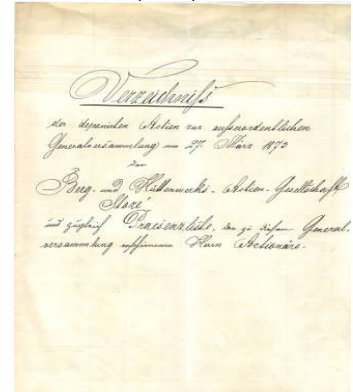 Verzeichniß
der deponirten Actien zur außerordentlichen
Generalversammlung am 27. März 1873
der
Berg- und Hüttenwerks-Actien-Gesellschaft
Storé
und zugleich Praesenzliste, der zu dieser General-
versammlung erschienenen Herrn Actionäre.